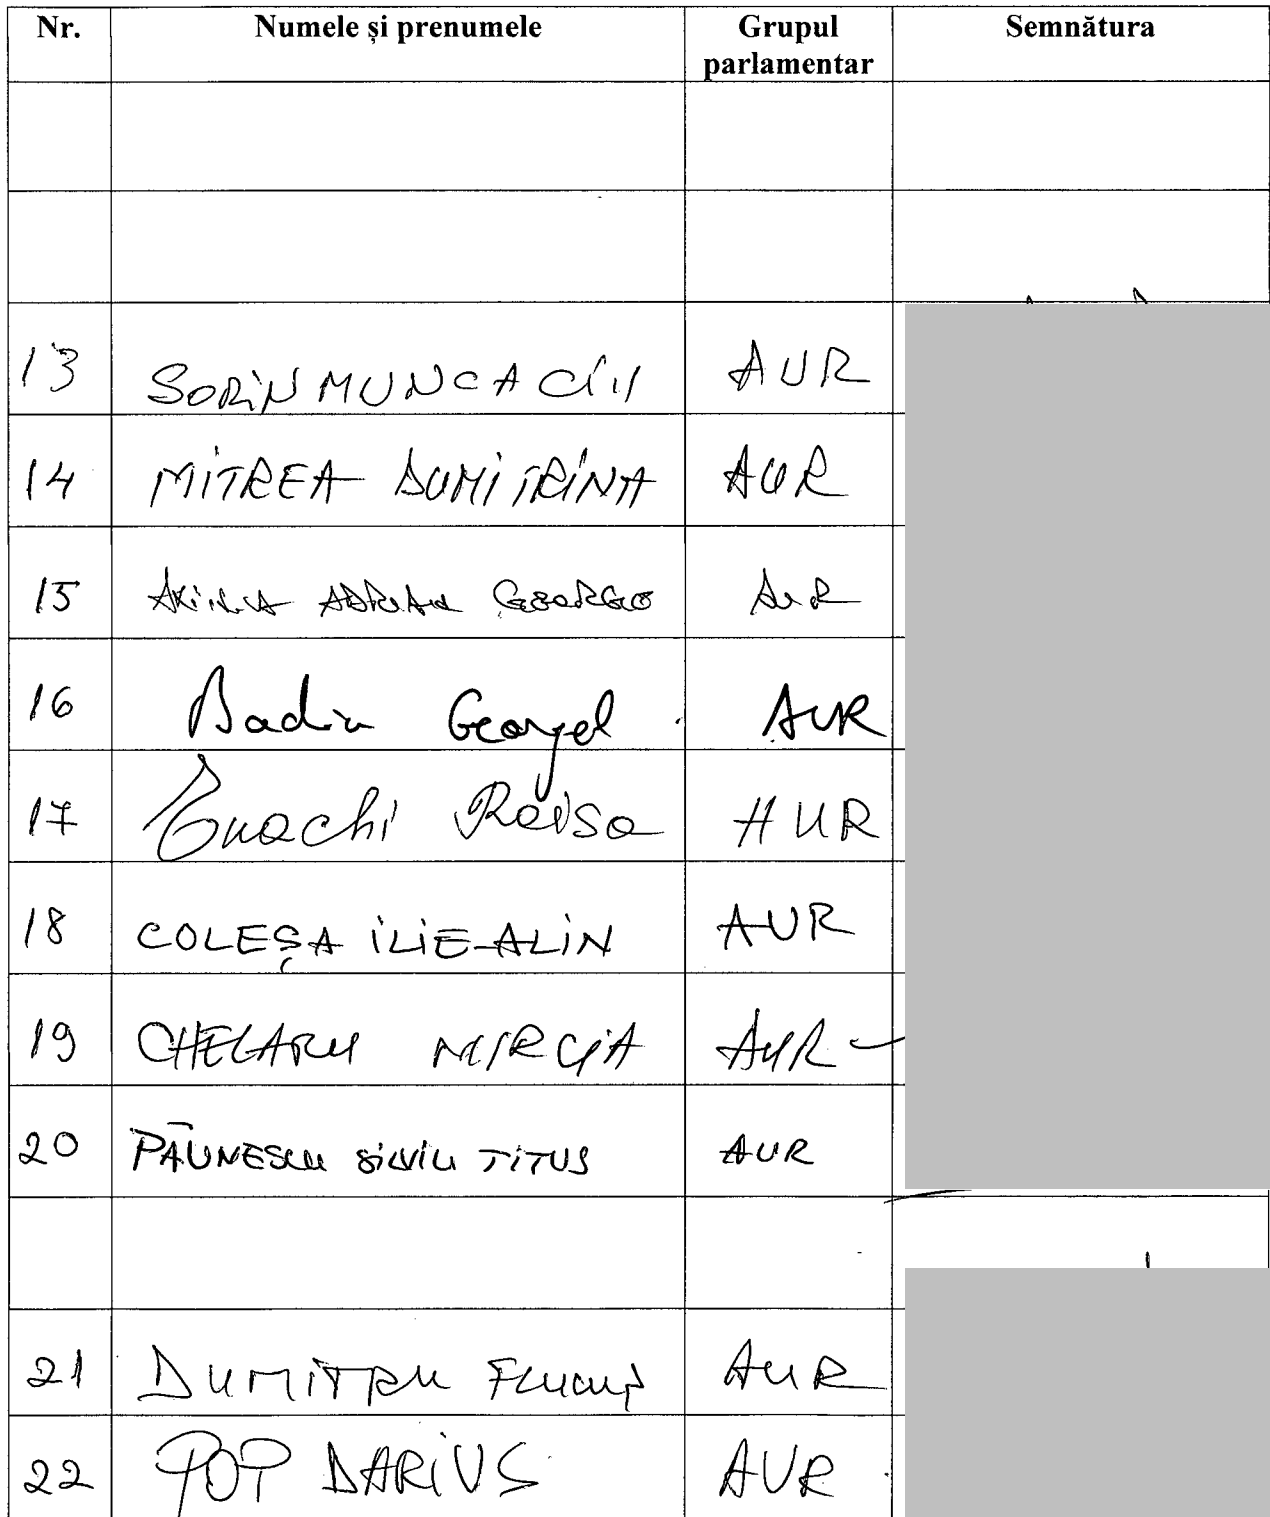 Nr. Numele și prenumele Grupul parlamentar Semnătura
13 SORIN MUNCACIU AUR
14 MITREA DUMITRINA AUR
15 ADRIAN GEORGE AUR
16 Badiu Georgel AUR
17 Enachi Raisa AUR
18 COLEȘA ILIE-ALIN AUR
19 CHELARU MIRCIA AUR
20 PĂUNESCU SILVIU TITUS AUR
21 DUMITRU AUR
22 POP DARIUS AUR